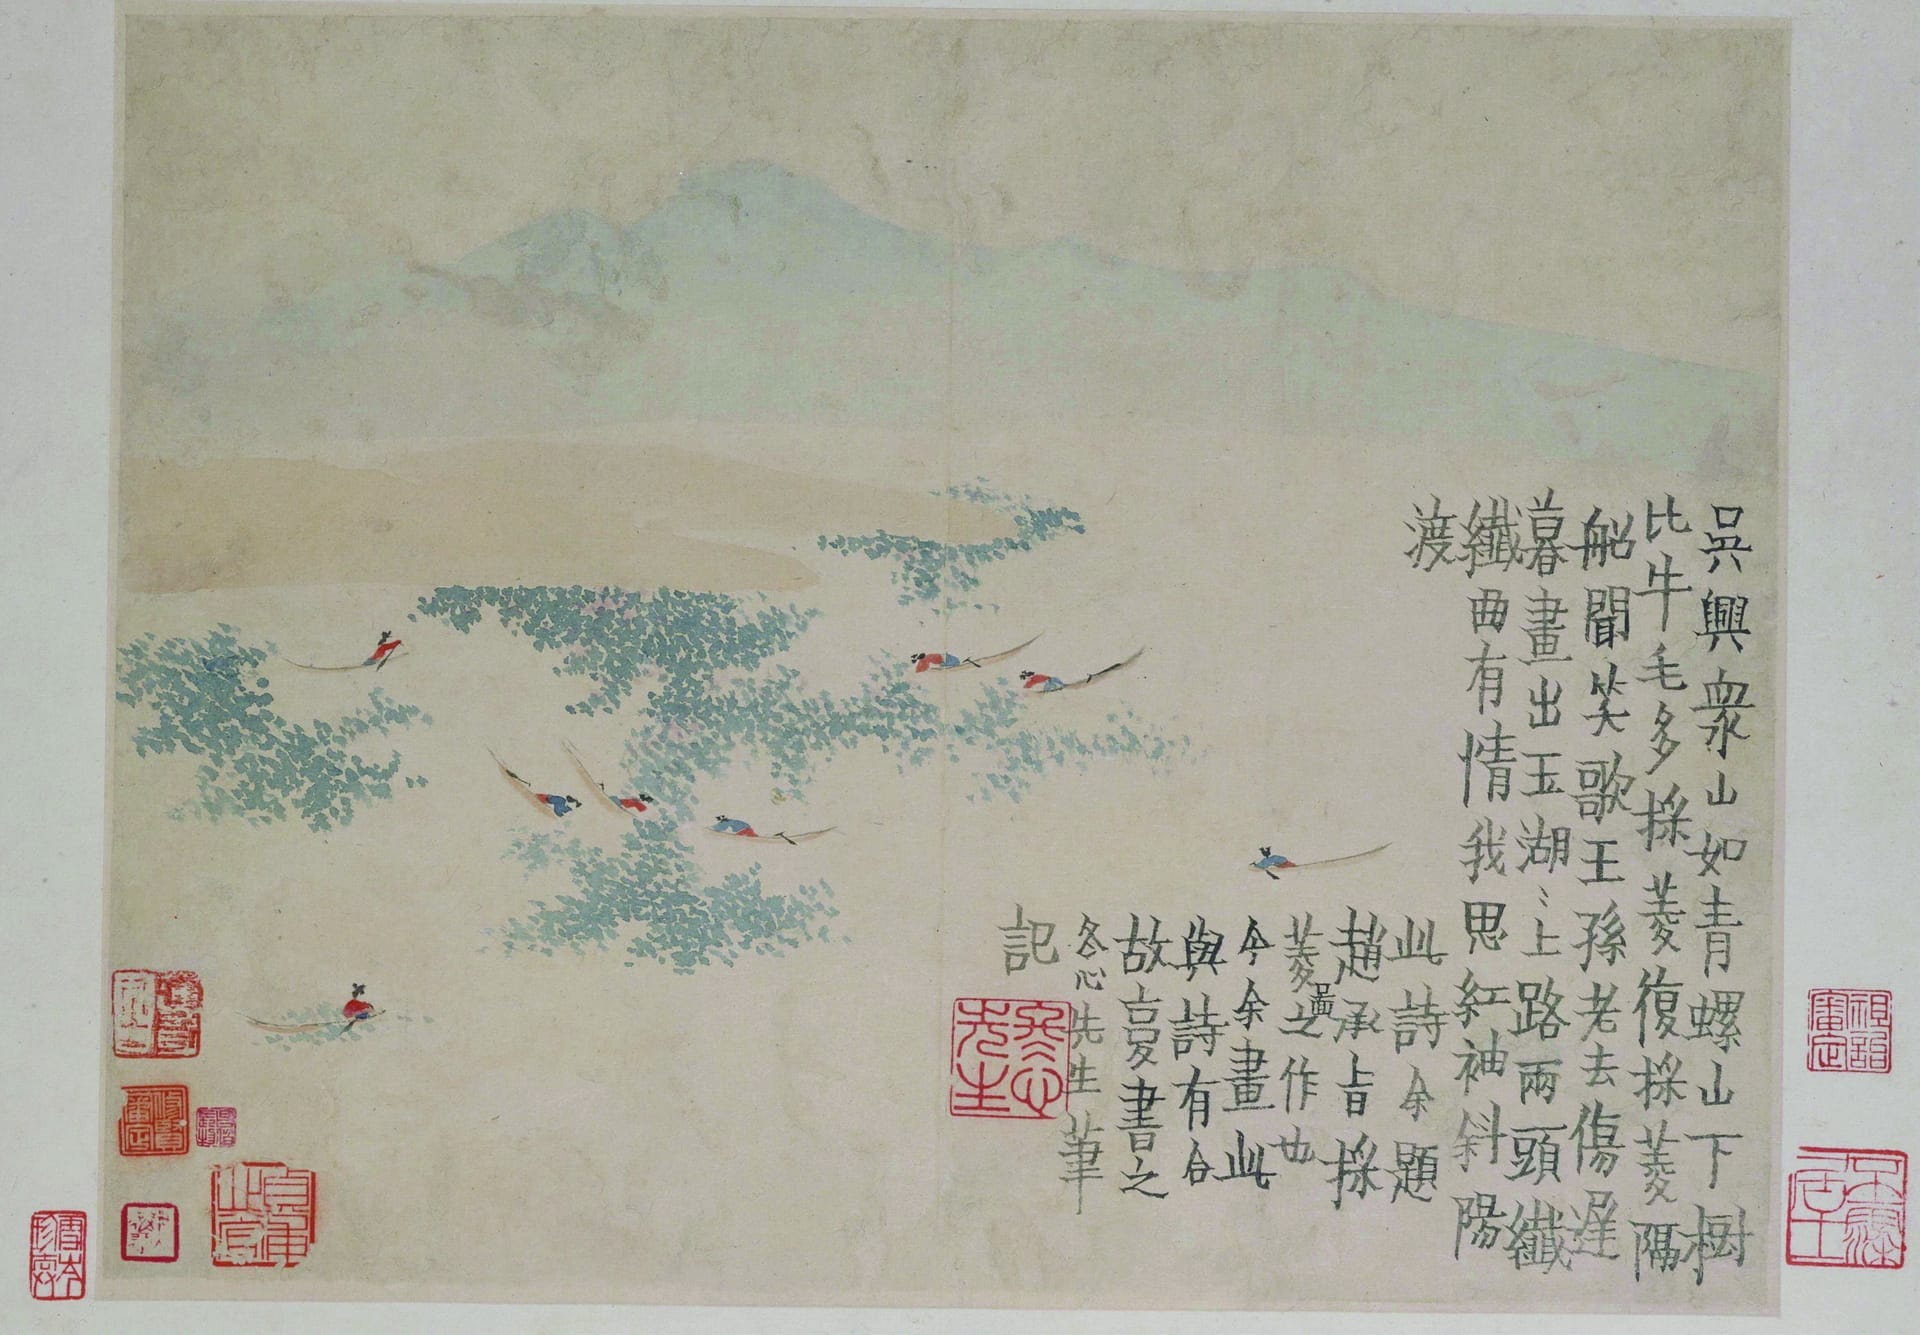 吳興衆山如青螺山下樹
比牛毛多採菱復採菱隔
船聞笑歌王孫老去傷遲
暮畫出玉湖〻上路兩頭纖
纖曲有情我思紅袖斜陽
渡
此詩余題
趙承旨採
菱圖之作也
今余畫此
與詩有合
故書之
冬心先生筆
記
冬心先生
祖詒審定